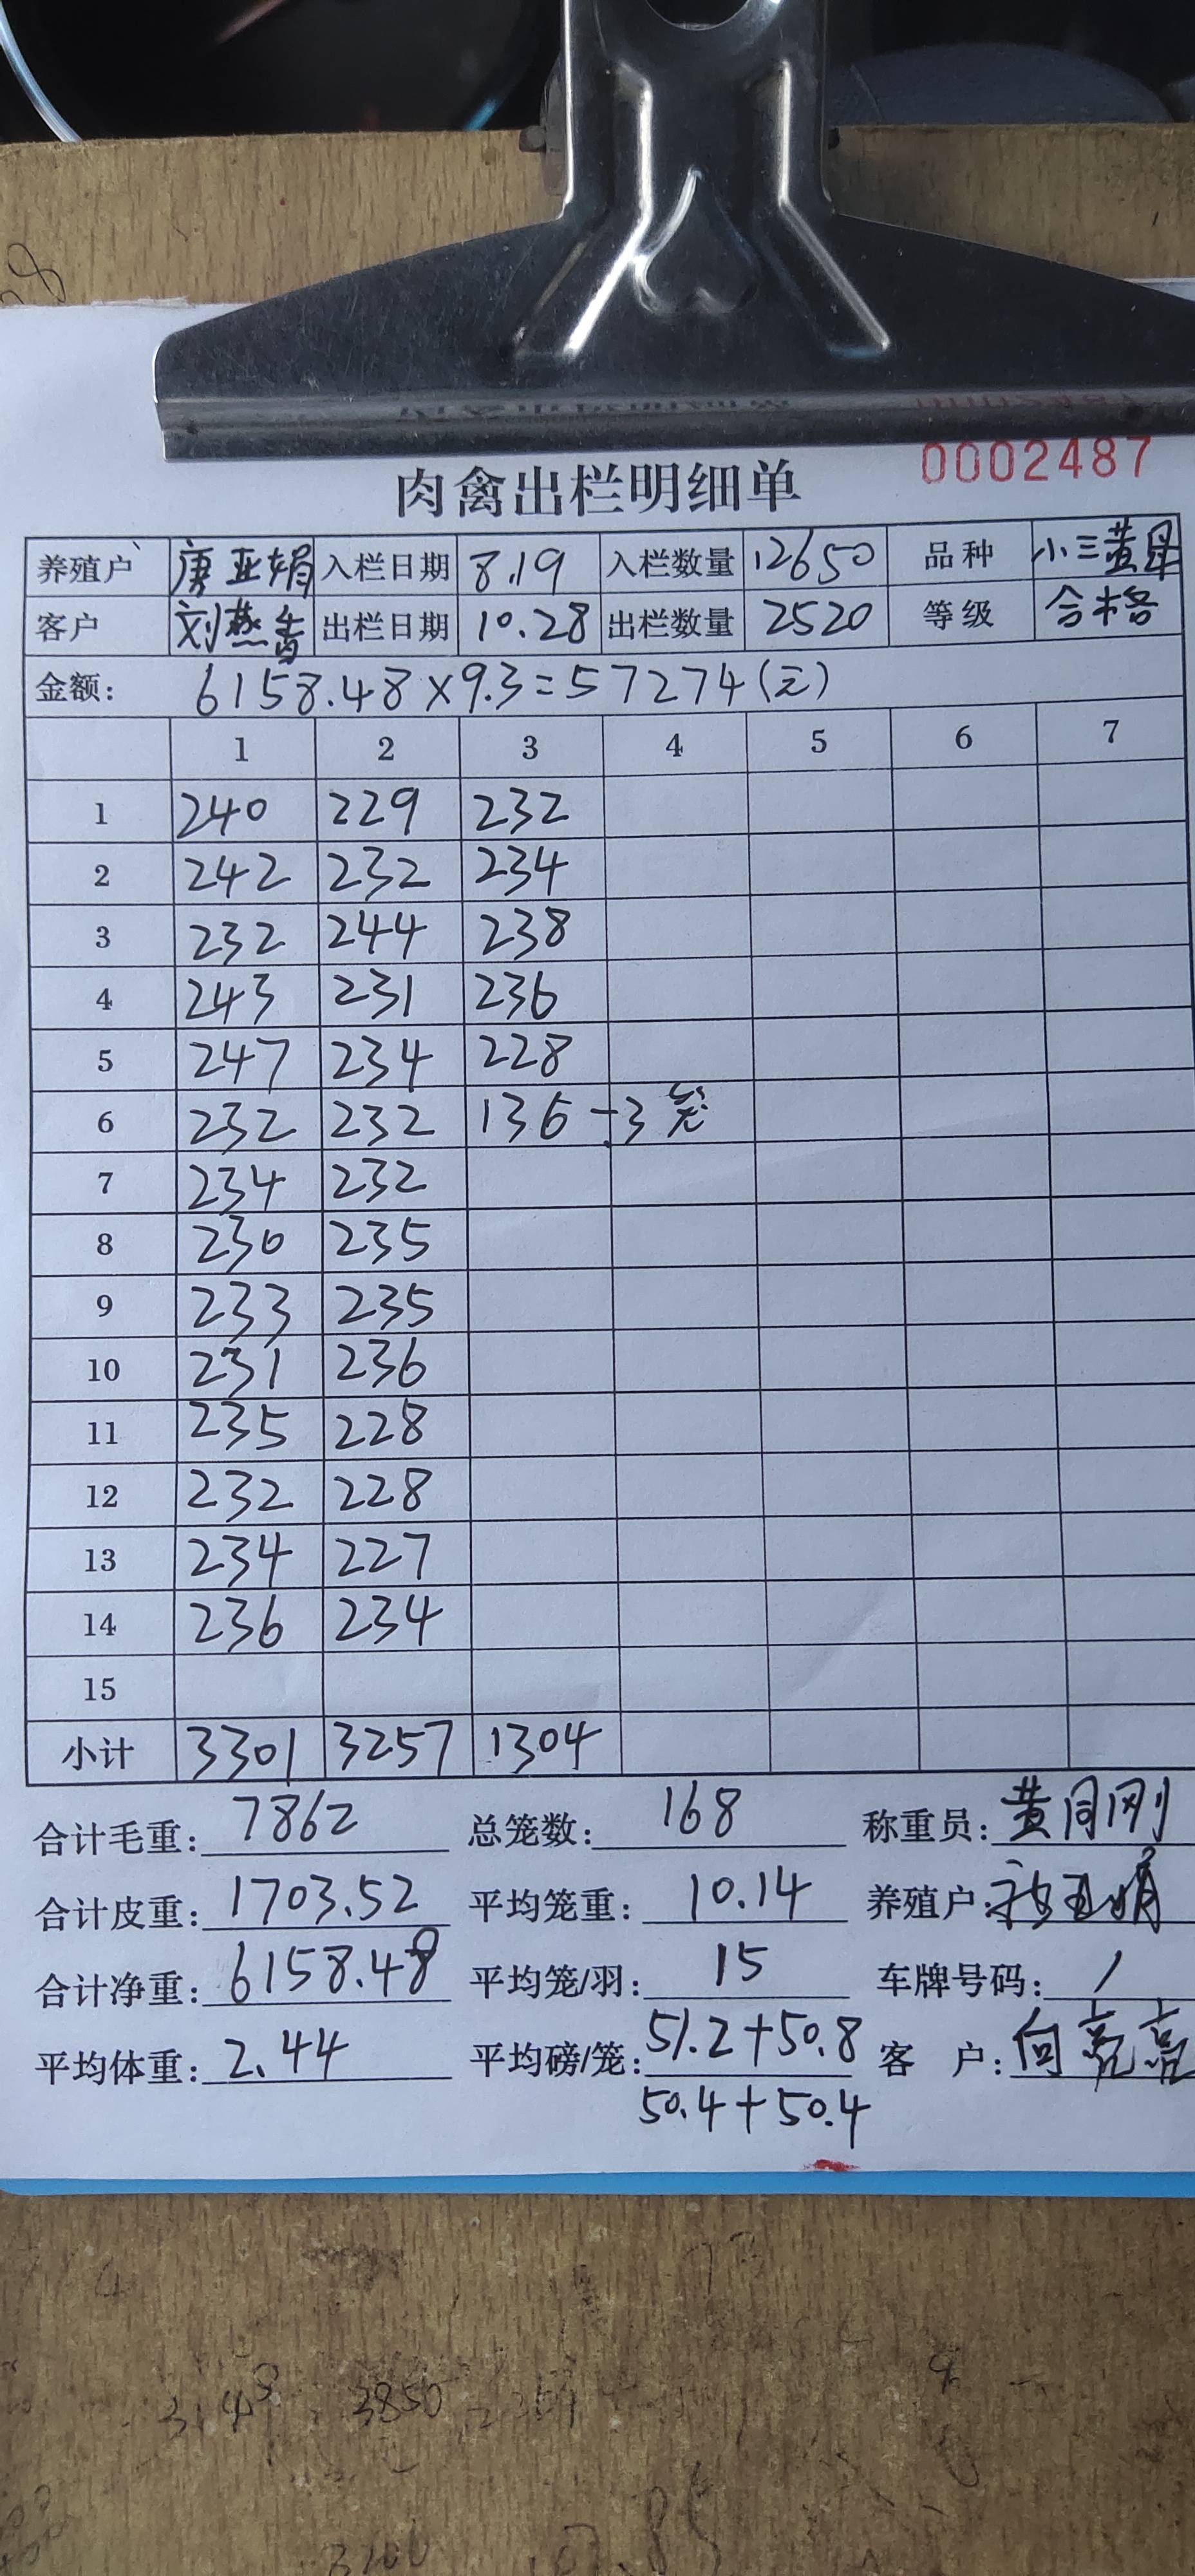 0002487
肉禽出栏明细单
养殖户 唐亚娟 入栏日期 8.19 入栏数量 12650 品种 小三黄
客户 刘燕香 出栏日期 10.28 出栏数量 2520 等级 合格
金额: 6158.48×9.3=57274(元)
1 2 3 4 5 6 7
1 240 229 232
2 242 232 234
3 232 244 238
4 243 231 236
5 247 234 228
6 232 232 136 -3笼
7 234 232
8 230 235
9 233 235
10 231 236
11 235 228
12 232 228
13 234 227
14 236 234
15
小计 3301 3257 1304
合计毛重: 7862 总笼数: 168 称重员: 黄同刚
合计皮重: 1703.52 平均笼重: 10.14 养殖户:
合计净重: 6158.48 平均笼/羽: 15 车牌号码: /
平均体重: 2.44 平均磅/笼: 51.2+50.8 客 户: 向亮亮
50.4+50.4